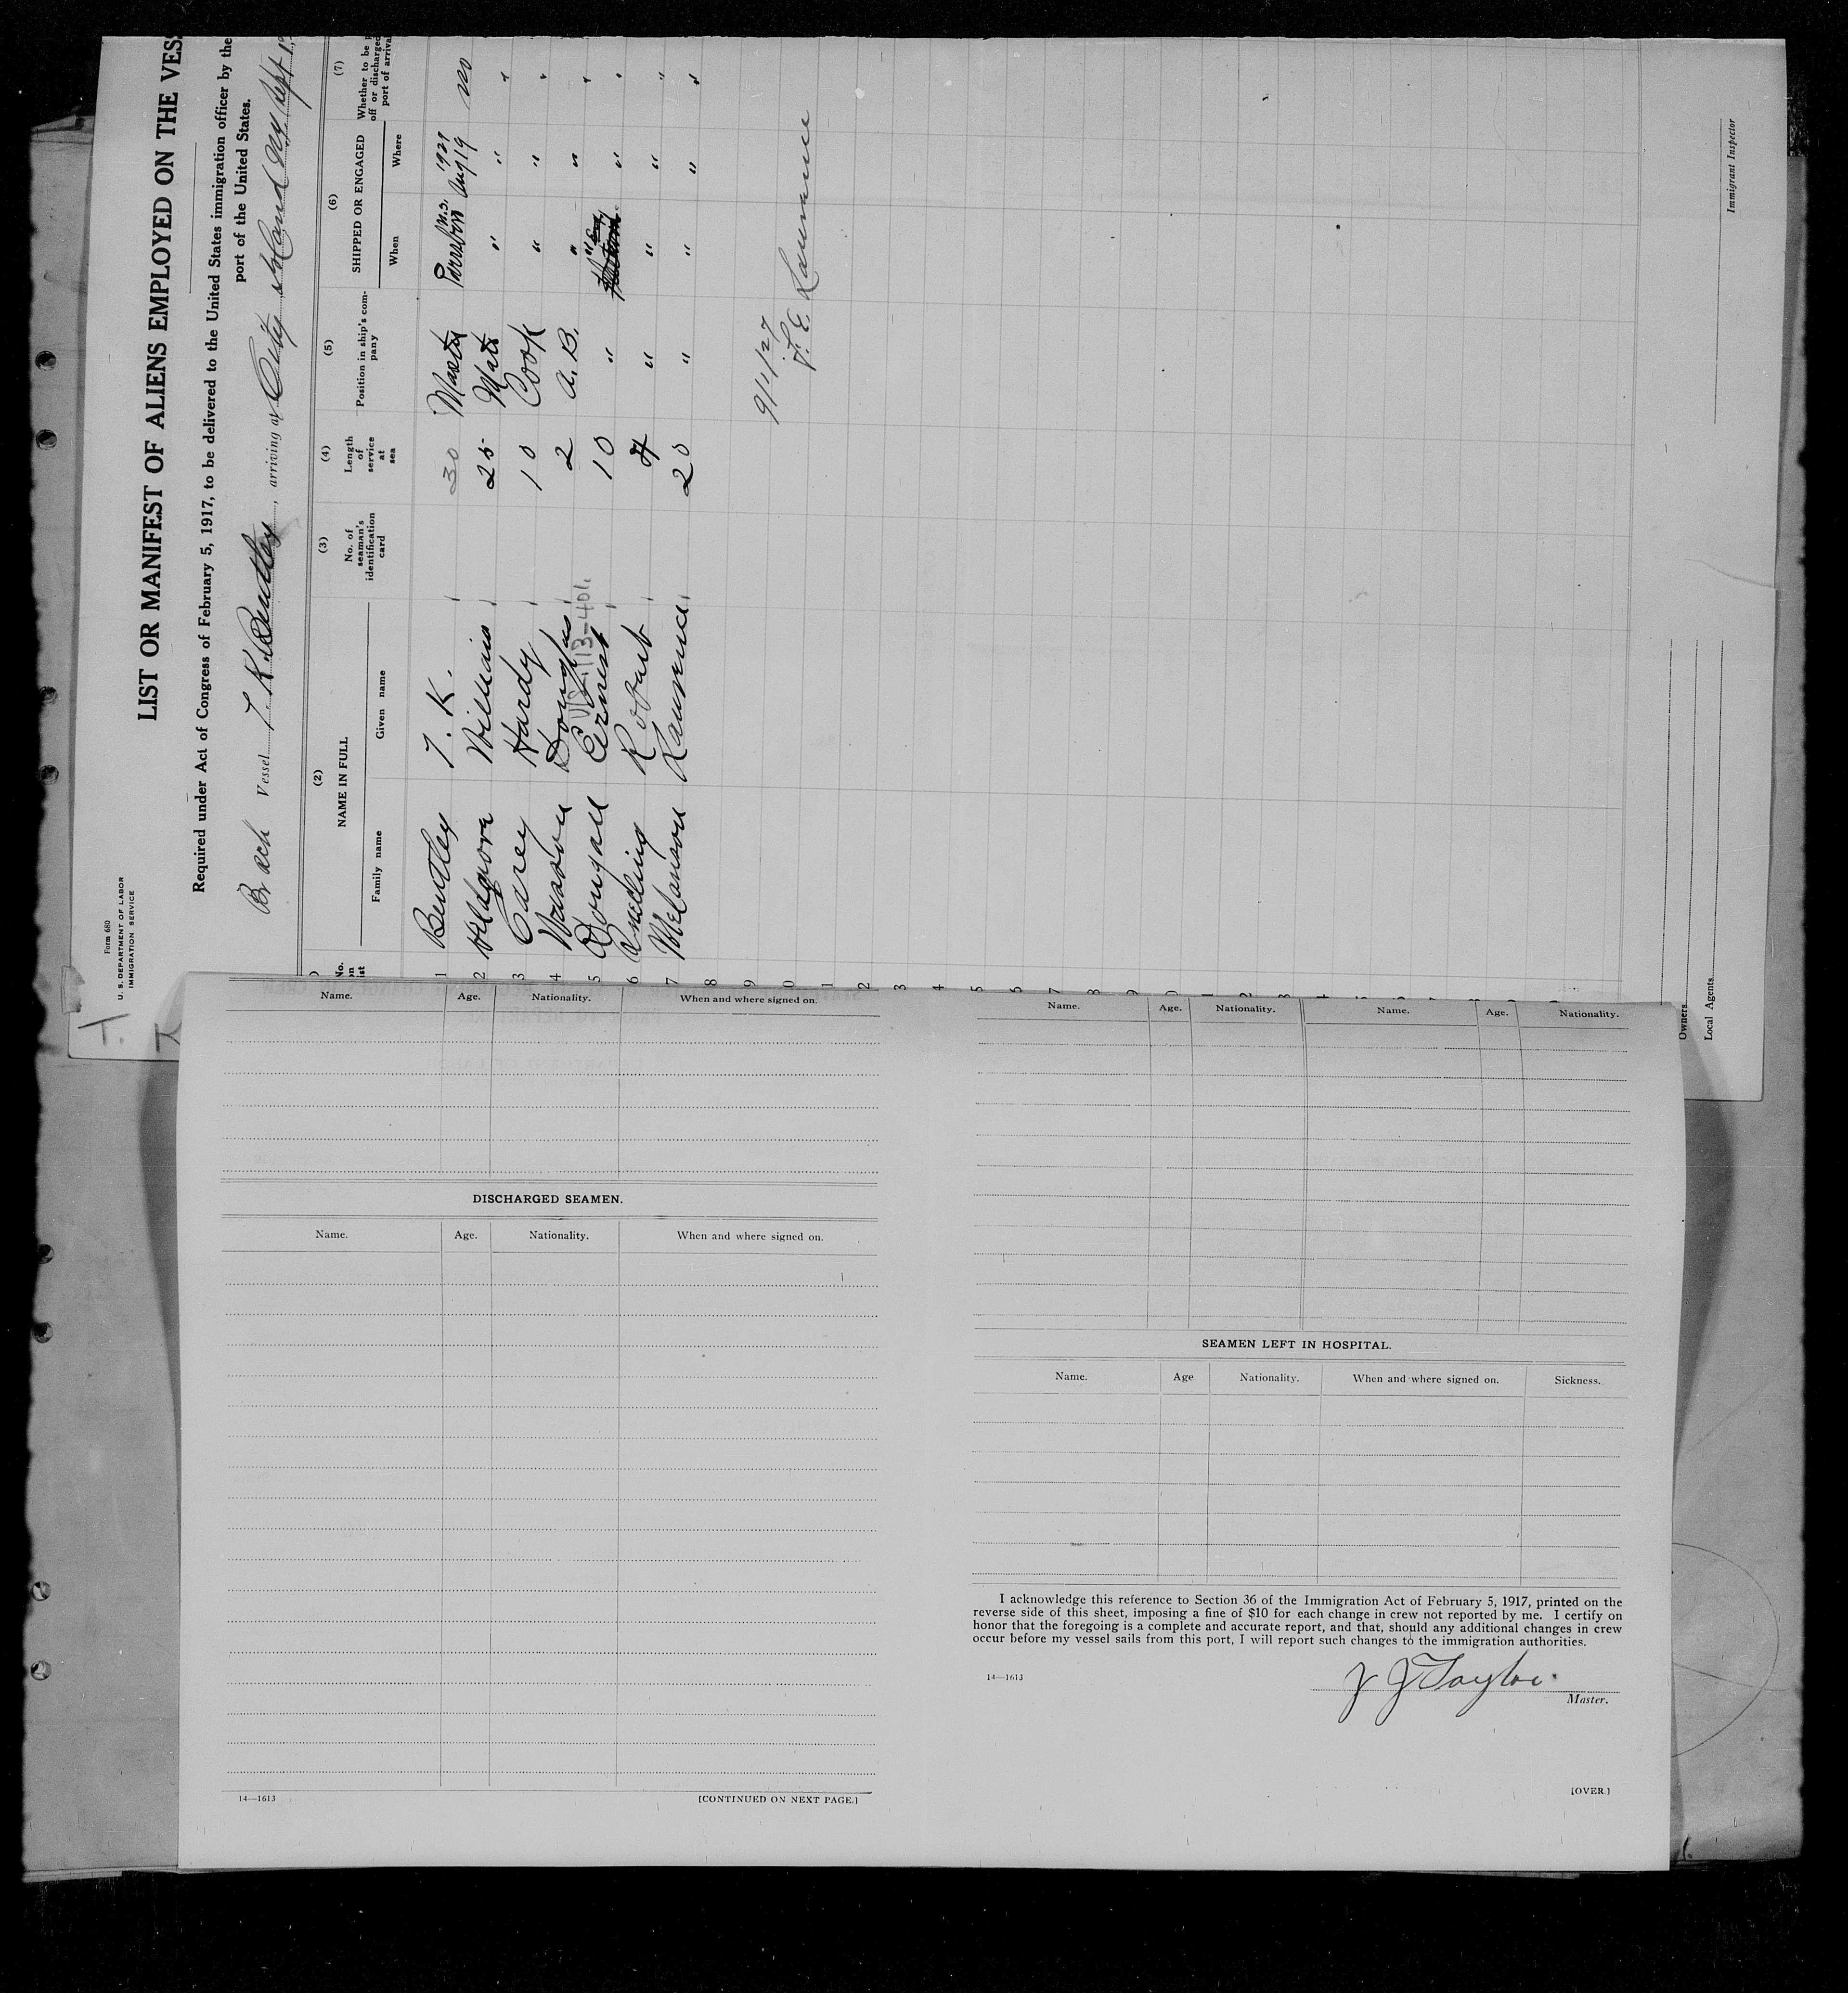 Form 680
U. S. DEPARTMENT OF LABOR
IMMIGRATION SERVICE
LIST OR MANIFEST OF ALIENS EMPLOYED ON THE VES
Required under Act of Congress of February 5, 1917, to be delivered to the United States immigration officer by the
port of the United States.
Vessel T. K. Bentley, arriving at City Island NY Sept 1,
(2) (3) (4) (5) (6) (7)
No. on list
NAME IN FULL
Family name Given name
No. of seaman's identification card
Length of service at sea
Position in ship's company
SHIPPED OR ENGAGED
When Where
Whether to be
off or discharged
port of arrival
1 Bentley T. K. 30 Master Parrsboro N.S. Aug 19 1927 no
2 William 25 Mate " " "
3 Carey Hardy 10 Cook " " "
4 Wasson Douglas 2 A. B. " " "
5 Dougall Ernest 10 " " " "
6 Robert " " " "
7 Melanson Lawrence 20 " " " "
8
9
0
1
2
3
4
5
6
7
8
9
0
1
2
3
4
13-401
9/1/27
Immigrant Inspector
Owners
Local Agents
T.
Name. Age. Nationality. When and where signed on.
DISCHARGED SEAMEN.
Name. Age. Nationality. When and where signed on.
14—1613 [CONTINUED ON NEXT PAGE.]
Name. Age. Nationality. Name. Age. Nationality.
SEAMEN LEFT IN HOSPITAL.
Name. Age Nationality. When and where signed on. Sickness.
I acknowledge this reference to Section 36 of the Immigration Act of February 5, 1917, printed on the
reverse side of this sheet, imposing a fine of $10 for each change in crew not reported by me. I certify on
honor that the foregoing is a complete and accurate report, and that, should any additional changes in crew
occur before my vessel sails from this port, I will report such changes to the immigration authorities.
14—1613
J J Taylor
Master.
[OVER.]